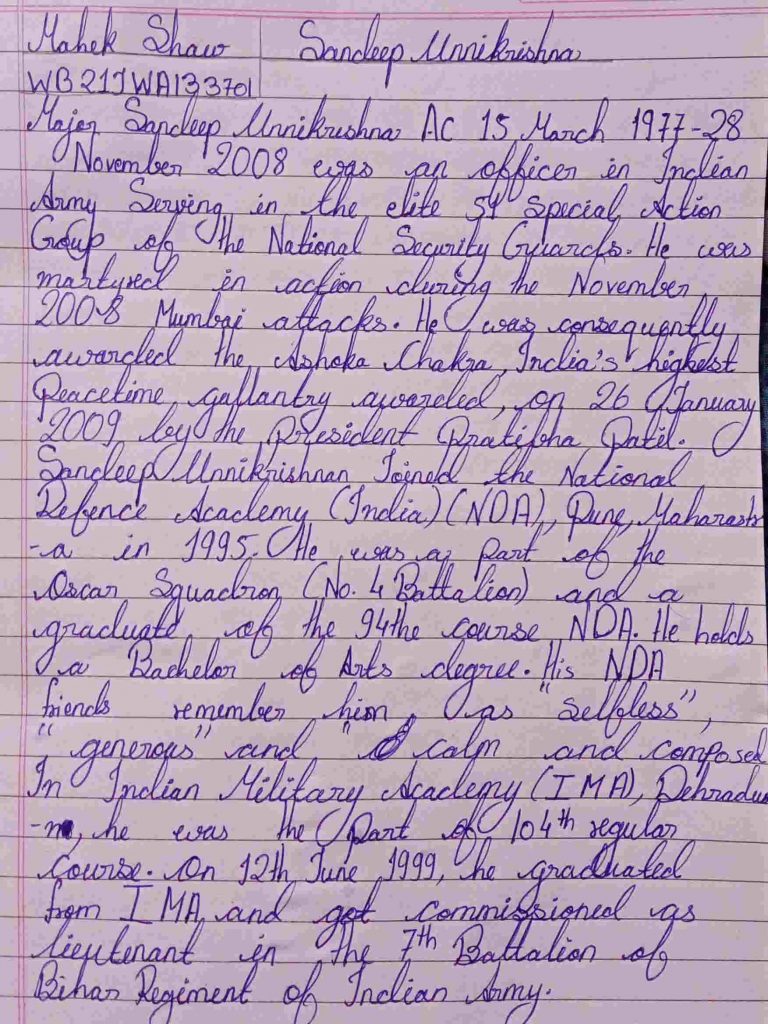 Mahek Shaw | Sandeep Unnikrishna
WB21JWA133701
Major Sandeep Unnikrishna AC 15 March 1977-28
November 2008 was an officer in Indian
Army Serving in the elite 51 Special Action
Group of the National Security Guards. He was
martyred in action during the November
2008 Mumbai attacks. He was consequently
awarded the Ashoka Chakra, India's highest
Peacetime gallantry awarded, on 26 January
2009 by the President Pratibha Patil.
Sandeep Unnikrishnan Joined the National
Defence Academy (India) (NDA), Pune, Maharastr
-a in 1995. He was a part of the
Oscar Squadron (No. 4 Battalion) and a
graduate of the 94the course NDA. He holds
a Bachelor of Arts degree. His NDA
friends remember him as "selfless",
"generous" and " calm and composed
In Indian Military Academy (IMA), Dehradu
-n, he was the part of 104th regular
Course. On 12th June 1999, he graduated
from IMA and got commissioned as
lieutenant in the 7th Battalion of
Bihar Regiment of Indian Army.